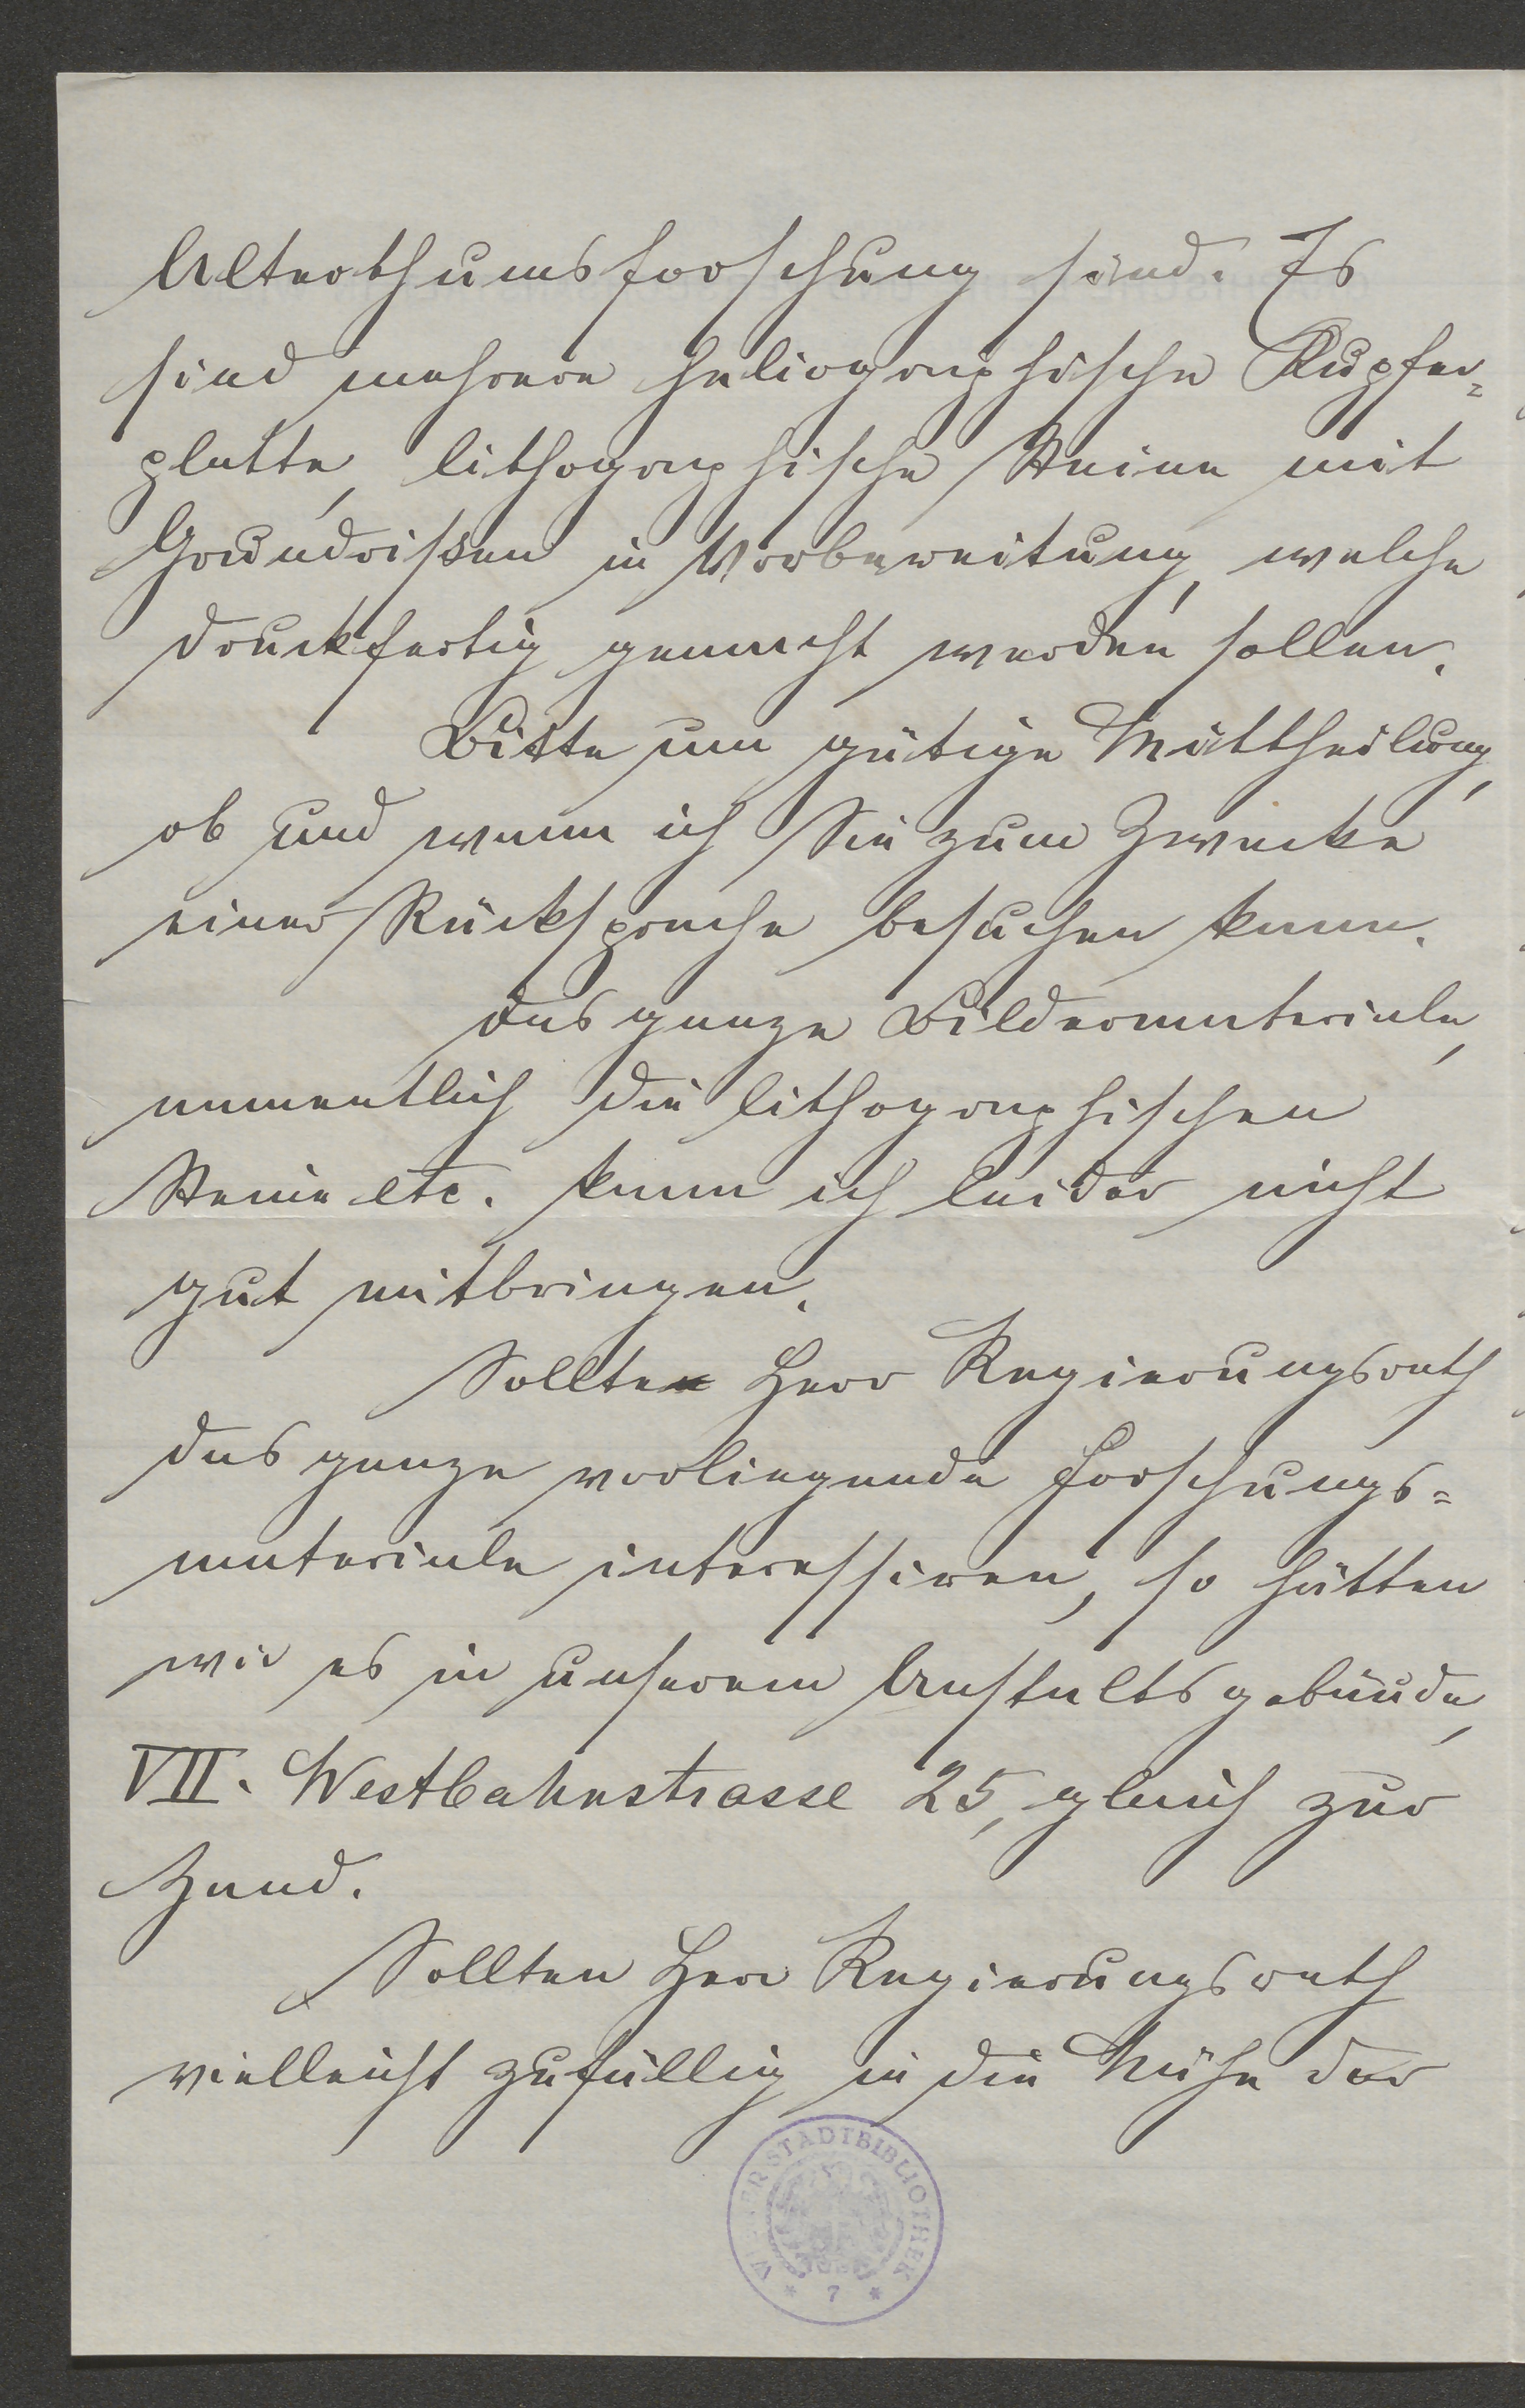 Alterthumsforschung sind. Es
sind mehrere heliographische Kupfer=
platte, lithographische Steine mit
Grundrißen in Vorbereitung, welche
druckfertig gemacht werden sollen.
Bitte um gütige Mittheilung,
ob und wann ich Sie zum Zwecke
einer Rücksprache besuchen kann.
Das ganze Bildermateriale,
namentlich die lithographischen
Steine etc. kann ich leider nicht
gut mitbringen.
Sollten Herr Regierungsrath
das ganze vorliegende Forschungs=
materiale interessiren, so hätten
wir es in unserem Anstaltsgebäude,
VII. Westbahnstrasse 25, gleich zur
Hand.
Sollten Herr Regierungsrath
vielleicht zufällig in die Nähe der
WIENER STADTBIBLIOTHEK
* 7 *